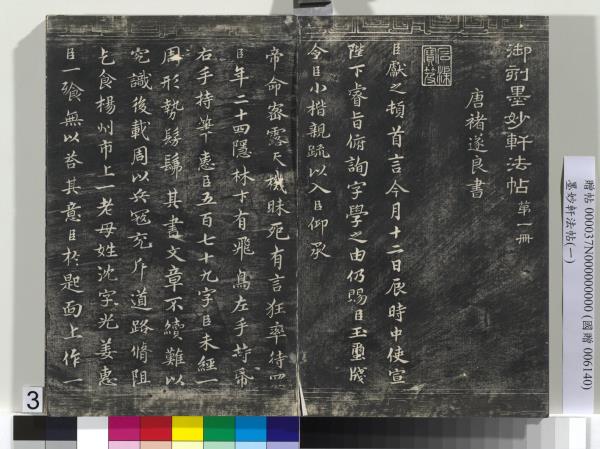 御刻墨妙軒法帖 第一冊
唐褚遂良書
臣獻之頓首言今月十二日辰時中使宣
陛下睿旨俯詢字學之由仍賜臣玉璽牋
令臣小楷親疏以入臣仰承
帝命密露天機昧死有言狂率待罪
臣年二十四隱林下有飛鳥左手持帋
右手持筆惠臣五百七十九字臣未經一
周形勢髣髴其書文章不續難以
究識後載周以兵寇充斥道路脩阻
乞食楊州市上一老母姓沈字光姜惠
臣一飡無以荅其意臣於匙面上作一
贈帖 000037N000000000 (國贈 006140)
墨妙軒法帖(一)
3